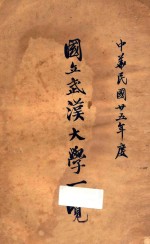 中華民國廿五年度
國立武漢大學一覽